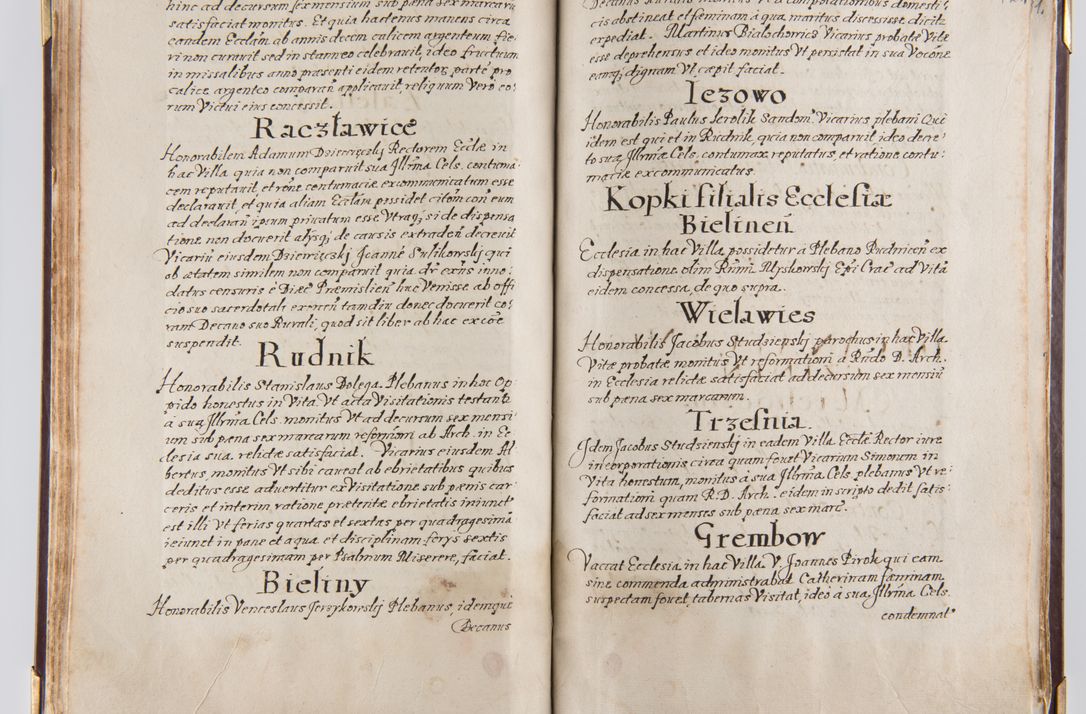 hinc ad decursum sex mensium sub pœna sex marcarũ
satisfaciat monitus. Et quia hactenus manens circa
eandem Ecclãm ab annis decem calicem argenteum fie-
ri non curavit sed in stanneo celebravit, ideo fructuum
in missalibus anno præsenti eidem retentoꝝ partẽ pro
calice argenteo comparañ applicauit, reliquum Vero eo:
rum Victui eius concessit.
Raczławice
Honorabilem Adamum Dzierięczkį Rectorem Ecclæ in
hac Villa quia non comparuit sua Jllrma Cels. contuma:
cem reputauit, et rõne contumaciæ excommunicatum esse
declarauit, et quia aliam Ecclãm possidet citom̃ coñ eum
ad declarañ ipsum priuatum esse Vtraq̃, si de dispensa
tione non docuerit alijsq̃ de causis extradeñ decreuit
Vicariũ eiusdem Dzierięczkj Joannẽ Sulikowskij qui
ob ætatem similem non comparuit quia dr̃ exiis inno:
datus censuris è Diæc̃ Præmislieñ huc Venisse ab offi
cio suo sacerdotali exercen̄ tamdiu donec docuerit co:
ram Decano suo Rurali, quod sit liber ab hac excõe
suspendit.
Rudnik
Honorabilis Stanislaus Dolega Plebanus in hoc Op
pido honestus in Vita Vt acta Visitationis testantr̃
à sua Jllrma Cels. monitus Vt ad decursum sex mensi
um sub pæna sex marcarum reformõni ab Arch. in Ec
clesia sua relictæ satisfaciat. Vicarius eiusdem Al
bertus, monitus Vt sibi caueat ab ebrietatibus quibus
deditus esse aduertitur ex Visitatione sub pænis car
ceris et interim ratione præteritæ ebrietatis iniunct̃
est illi Vt ferias quartas et sextas per quadragesimã
ieiunet in pane et aqua et disciplinam ferys sextis
per quadragesimam per Psalmum Miserere, faciat.
Bieliny
Honorabilis Venceslaus Jerzykowskj Plebanus, idemque
Decanus
Decanus Ruralis
cis abstineat et feminam à qua maritus discessisse dicitr̃
expediat. Martinus Bialochoricz Vicarius probatæ Vitæ
esse deprehensus et ideo monitus Vt persistat in sua Vocõne
eamq̃ dignam Vt cæpit faciat.
Iezowo
Honorabilis Paulus Serolik Sandom̃. Vicarius plebani Qui
idem est qui et in Rudnik, quia non comparuit ideo decre
to suæ Jllrmæ Cels. contumax reputatus, et ratione contu:
maciæ excommunicatus.
Kopki filialis Ecclesiæ
Bielineñ
Ecclesia in hac Villa possidetur à Plebano Rudnicen̄ ex
dispensatione olim Rñmi Myskowskj Epi Crac̃ ad Vitã
eidem concessa, de quo supra.
Wielawies
Honorabilis Jacobus Studzienskj parochus in hac Villa
Vitæ probatæ monitus Vt reformationi à Rñdo D. Arch.
in Ecclesia relictæ satisfaciat ad decursum sex mensiũ
sub pæna sex marcarum.
Trzesnia
Jdem Jacobus Studzienskj in eadem Villa Ecclæ Rector iure
incorporationis, circa quam fouet Vicarium Simonem in
Vita honestum, monitus à sua Jllrma Cels. plebanus Vt re:
formationi quam R.D. Arch. eidem in scripto dedit satis:
faciat ad sex menses sub pæna sex marc̃.
Grembow
Vaccat Ecclesia in hac Villa V. Joannes Pirok qui eam
sine commenda administrabat Catherinam fæminam
suspectam fouet, tabernas Visitat, ideò à sua Jllrma Cels.
condemnat̃